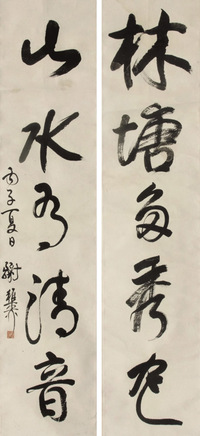 林塘多秀色
山水有清音
丙子夏日
謝稚柳